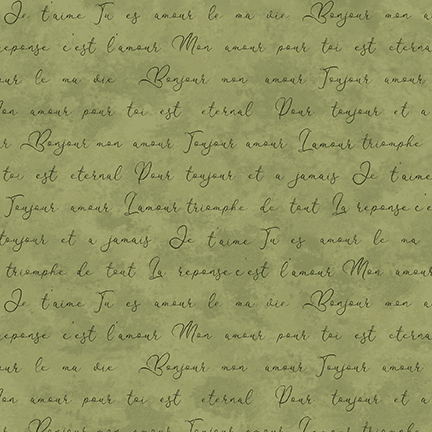 Je t'aime Tu es amour le ma vie Bonjour mon a
reponse c'est l'amour Mon amour pour toi est eterna
our le ma vie Bonjour mon amour Toujour amour
on amour pour toi est eternal Pour toujour et a
r Bonjour mon amour Toujour amour L'amour triomphe
toi est eternal Pour toujour et a jamais Je t'aime
Toujour amour L'amour triomphe de tout La reponse c'e
toujour et a jamais Je t'aime Tu es amour le ma
triomphe de tout La reponse c'est l'amour Mon amour
Je t'aime Tu es amour le ma vie Bonjour mon a
reponse c'est l'amour Mon amour pour toi est eterna
our le ma vie Bonjour mon amour Toujour amour
on amour pour toi est eternal Pour toujour et a
r Bonjour mon amour Toujour amour L'amour triomphe